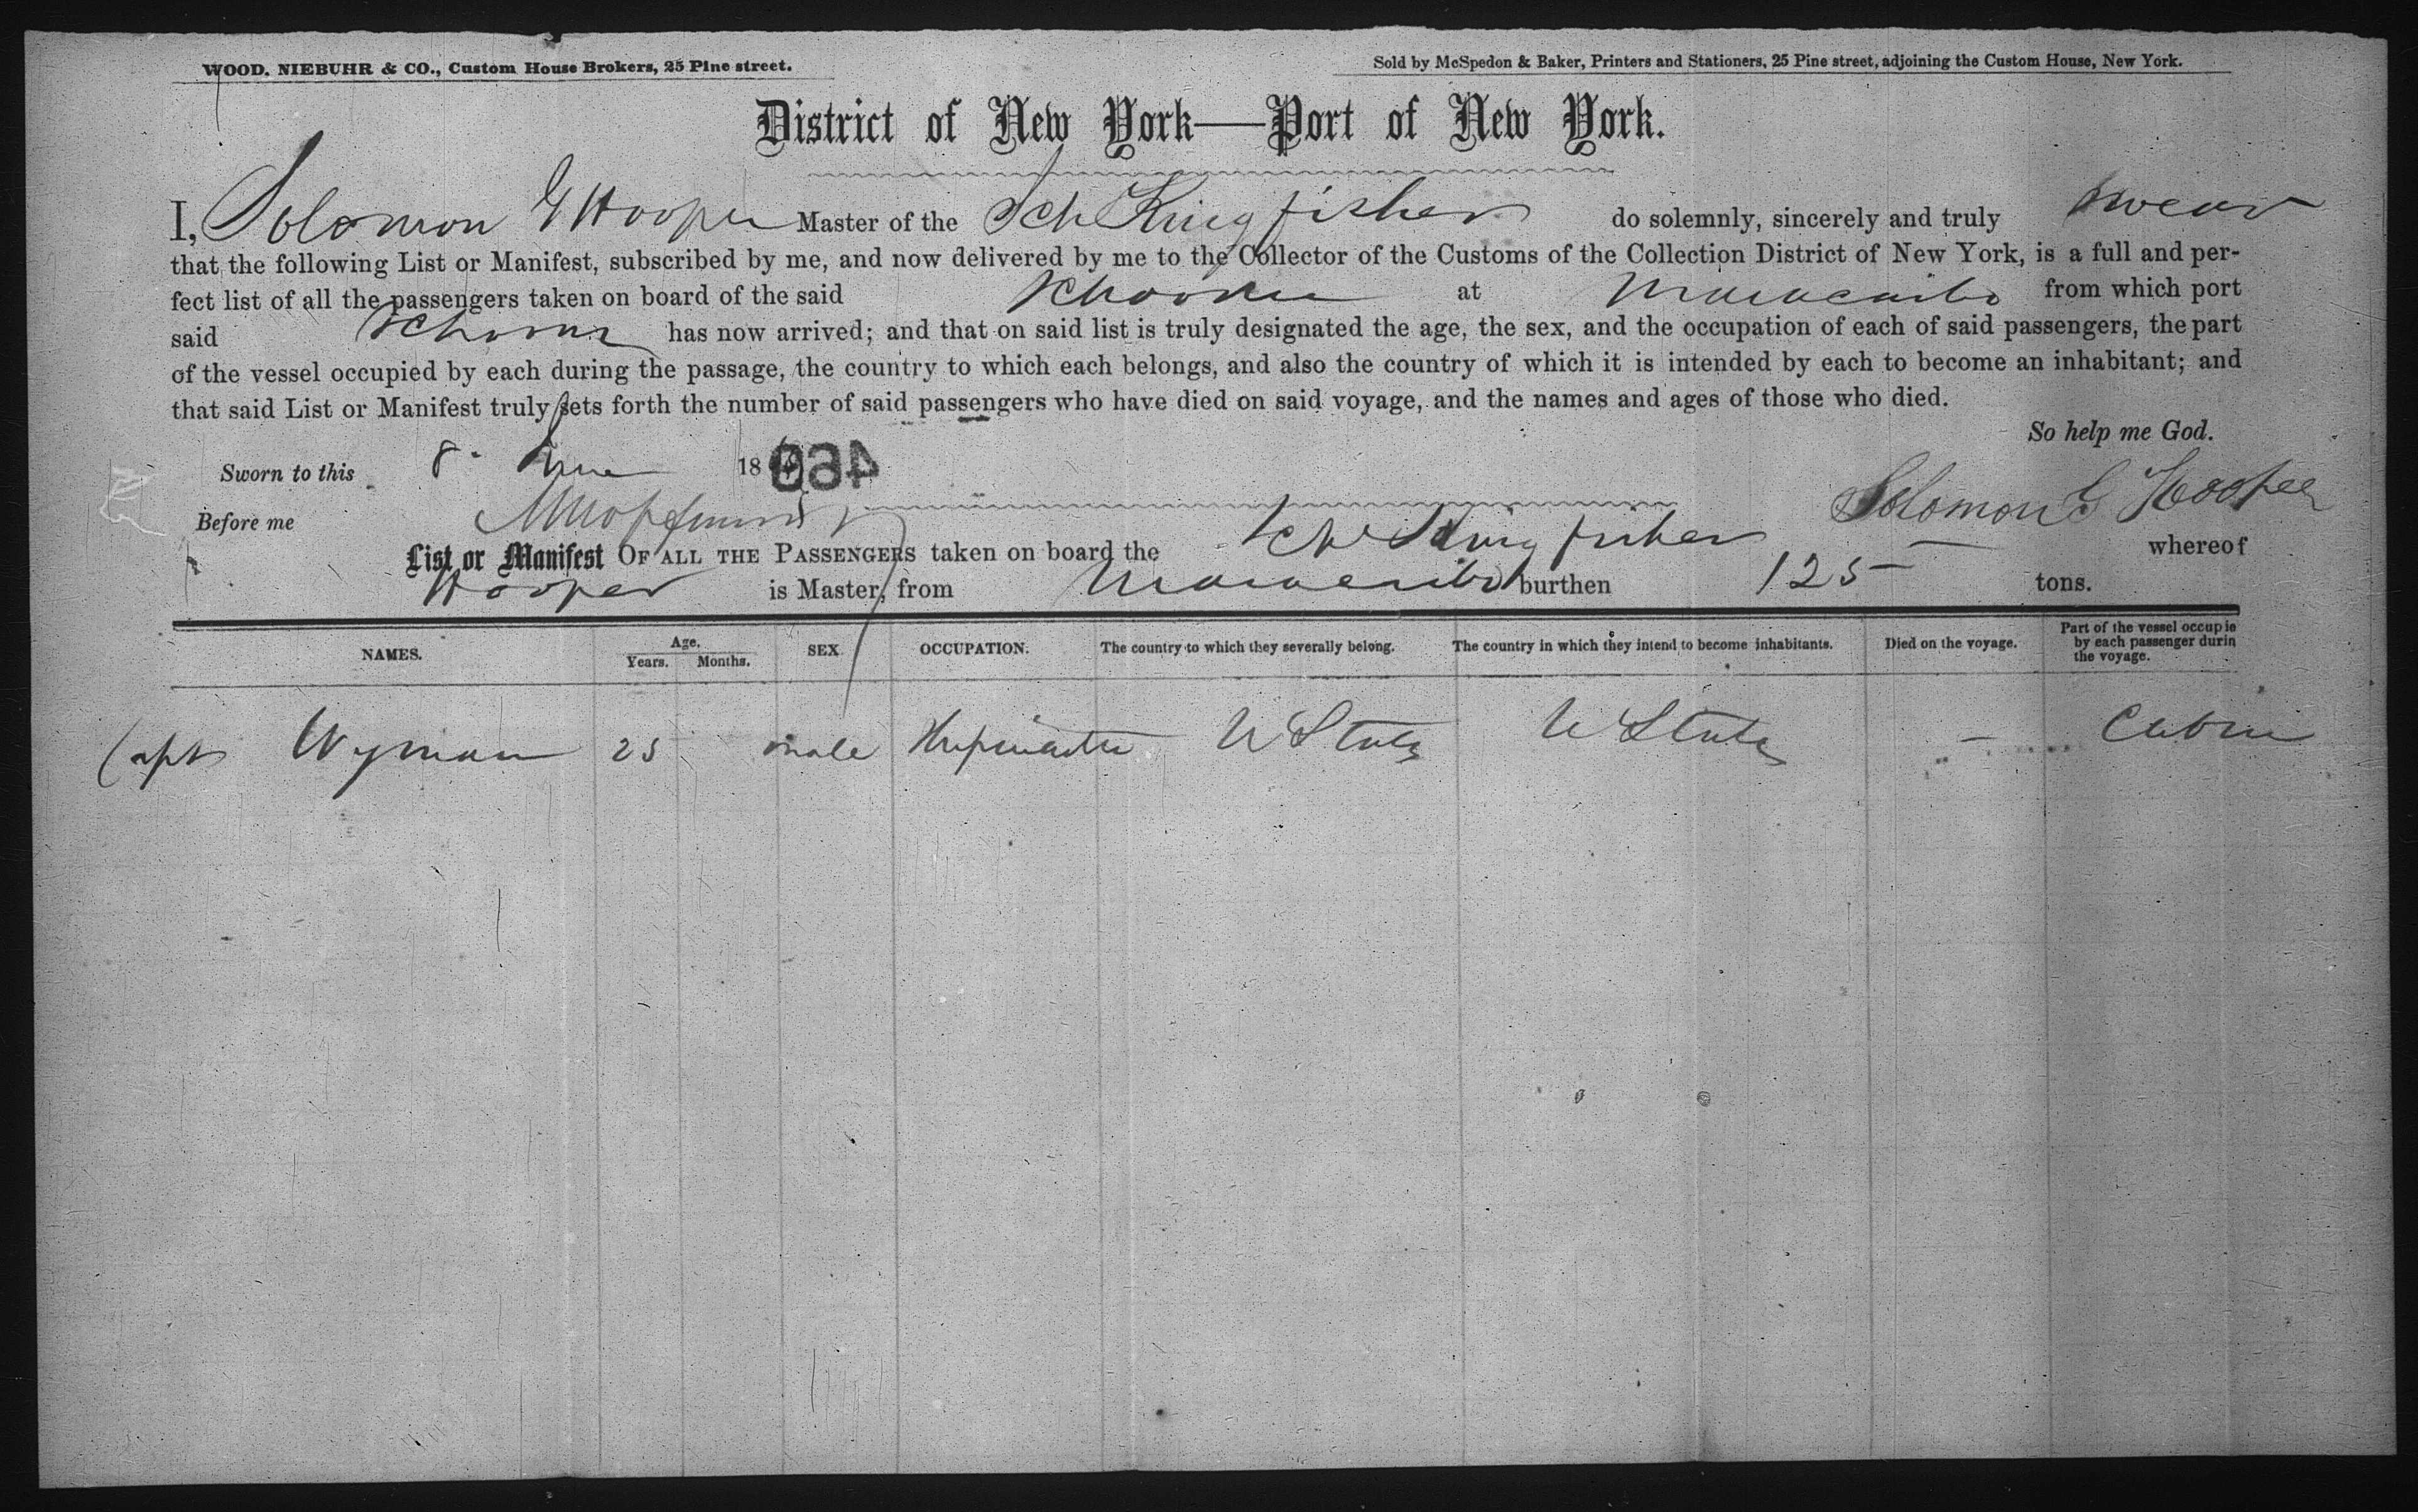 WOOD, NIEBUHR & CO., Custom House Brokers, 25 Pine street.
Sold by McSpedon & Baker, Printers and Stationers, 25 Pine street, adjoining the Custom House, New York.
District of New York—Port of New York.
I, Solomon G Hooper Master of the Sch Kingfisher do solemnly, sincerely and truly swear
that the following List or Manifest, subscribed by me, and now delivered by me to the Collector of the Customs of the Collection District of New York, is a full and per-
fect list of all the passengers taken on board of the said Schooner at Maracaibo from which port
said Schooner has now arrived; and that on said list is truly designated the age, the sex, and the occupation of each of said passengers, the part
of the vessel occupied by each during the passage, the country to which each belongs, and also the country of which it is intended by each to become an inhabitant; and
that said List or Manifest truly sets forth the number of said passengers who have died on said voyage, and the names and ages of those who died.
So help me God.
Sworn to this 8 June 18
460
Before me
Solomon G Hooper
List or Manifest OF ALL THE PASSENGERS taken on board the Sch Kingfisher whereof
Hooper is Master, from Maracaibo burthen 125 tons.
NAMES. Age. Years. Months. SEX OCCUPATION. The country to which they severally belong. The country in which they intend to become inhabitants. Died on the voyage. Part of the vessel occupie by each passenger durin the voyage.
Capt Wyman 25 male Shipmaster U States U States — Cabin